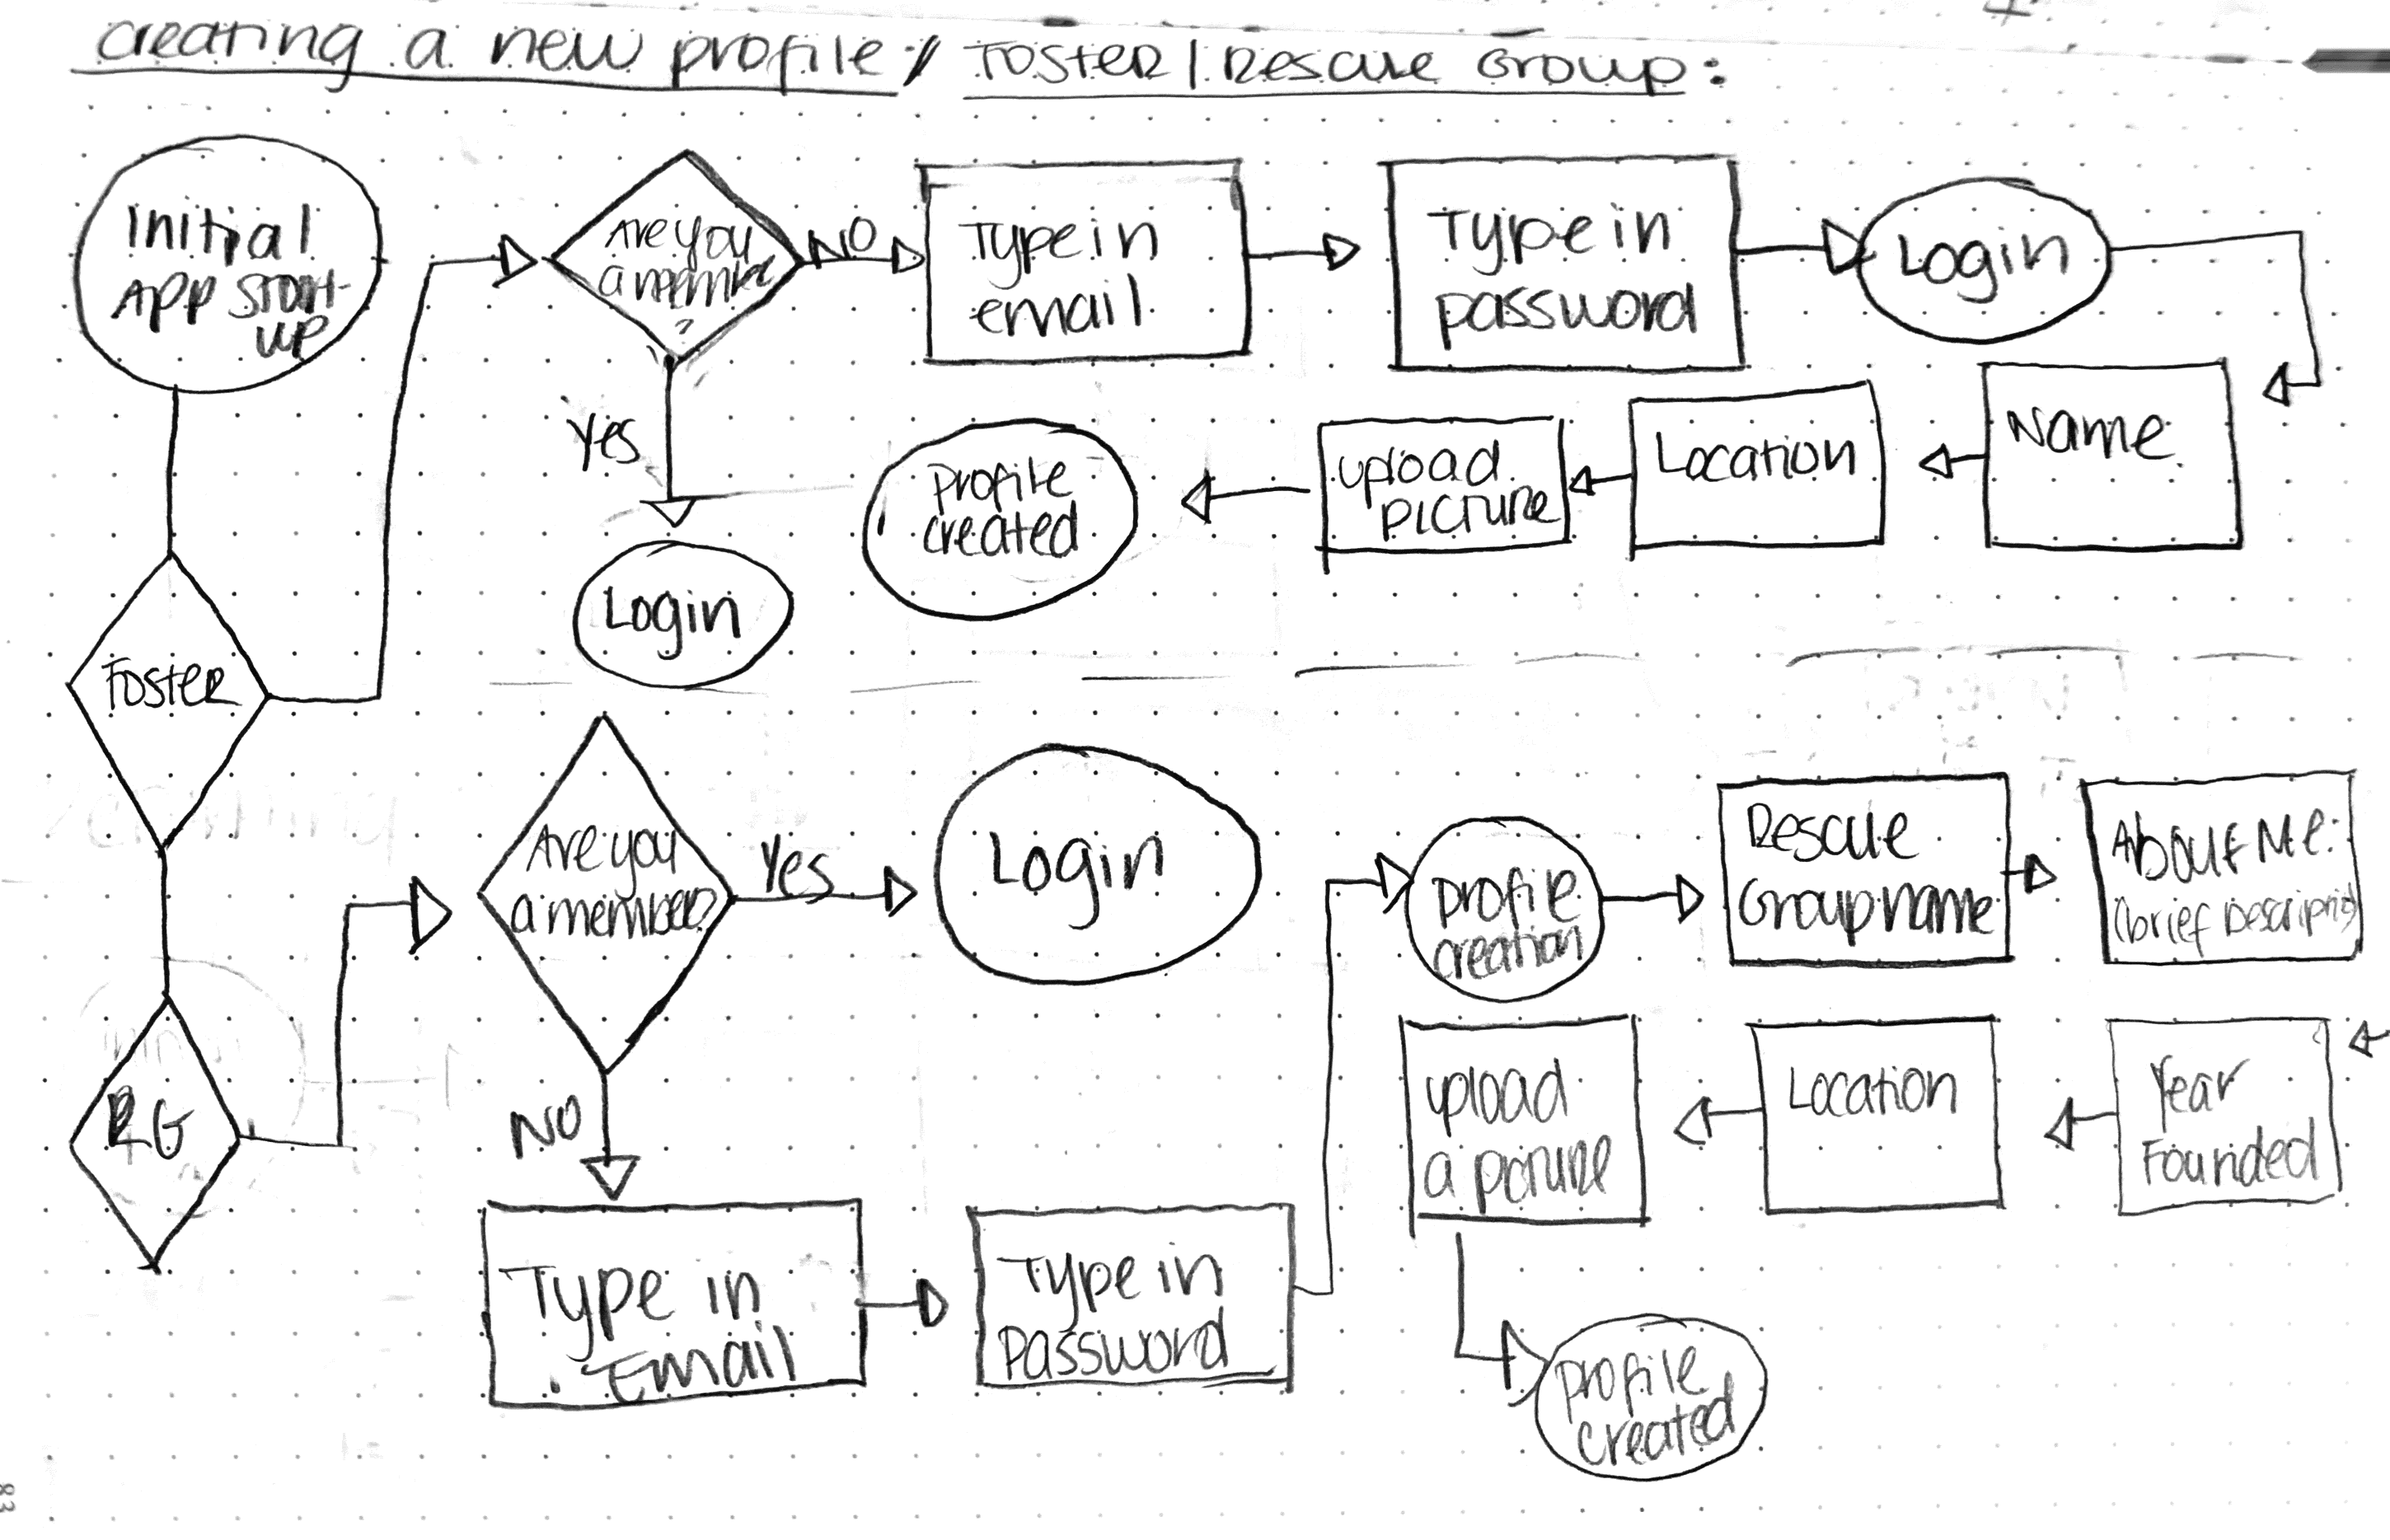 creating a new profile / Foster | Rescue Group:
Initial
App Start-
up
Are you
a member
?
NO
Type in
email
Type in
password
Login
Yes
Login
Name
Location
upload
picture
profile
created
Foster
Are you
a member?
Yes
Login
NO
RG
Type in
Email
Type in
Password
profile
creation
Rescue
Group name
About Me:
(brief Descriptio)
Year
Founded
Location
upload
a picture
profile
created
83